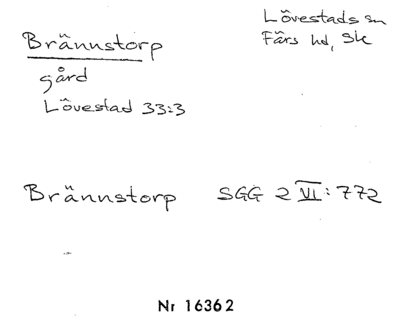 Brännstorp
Lövestads sn
Färs hd, Sk
gård
Lövestad 33:3
Brännstorp SGG 2 VI: 772
Nr 16362